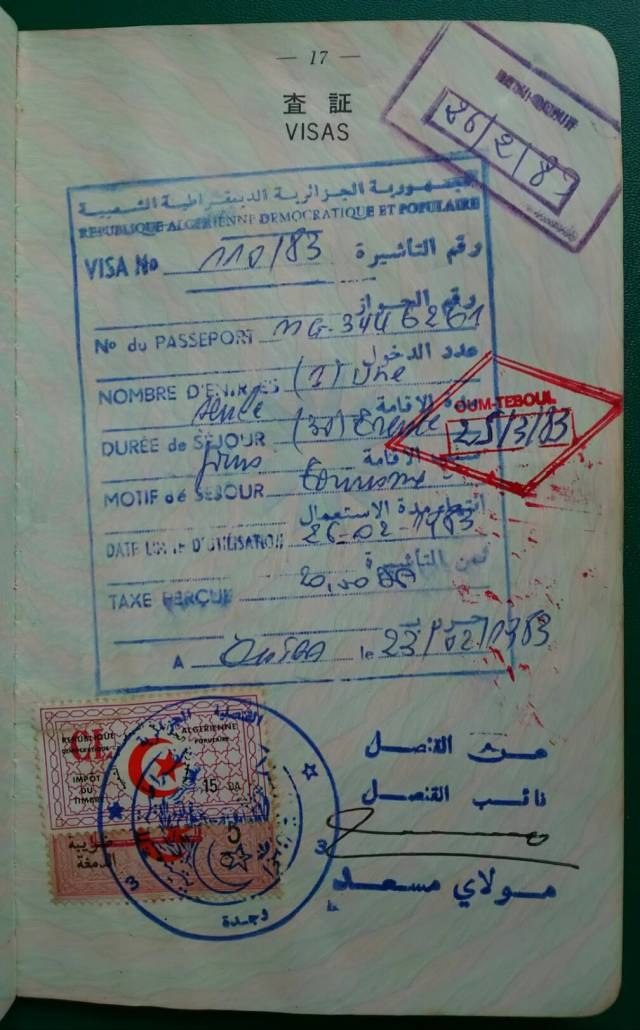 — 17 —
査 証
VISAS
26/2/83
الجمهورية الجزائرية الديمقراطية الشعبية
REPUBLIQUE ALGERIENNE DEMOCRATIQUE ET POPULAIRE
VISA No 110/83 رقم التأشيرة
رقم الجواز
No du PASSEPORT MG-3446261
عدد الدخول
NOMBRE D'ENTREES (1) Une
Seule
مدة الاقامة
DURÉE de SÉJOUR (30) Trente
jours
الاقامة
MOTIF dé SÉJOUR Tourisme
انتهاء مدة الاستعمال
DATE LIMITE D'UTILISATION 26-02-1983
ثمن التأشيرة
TAXE PERÇUE 20,00
A Oujda le 23/02/1983
OUM-TEBOUL
25/3/83
REPUBLIQUE ALGERIENNE
DEMOCRATIQUE POPULAIRE
IMPÔT
DU
TIMBRE
15 DA
ضريبة
الدمغة
5
الجزائرية
3
3
وجدة
عن القنصل
نائب القنصل
مولاي مسعد